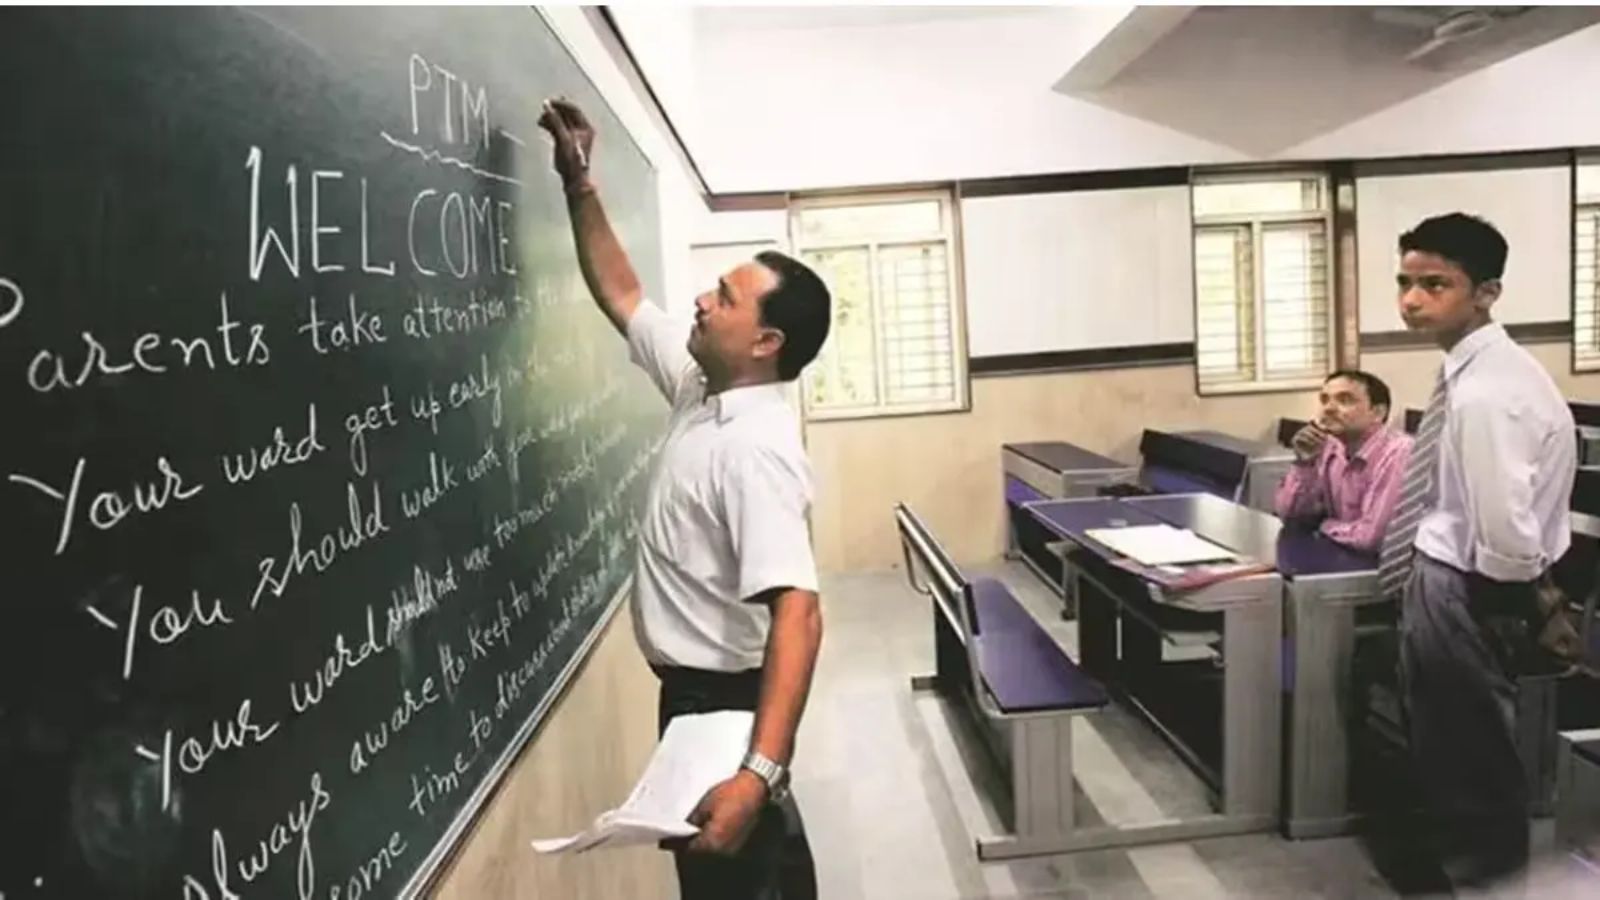 PTM
WELCOME
Parents take attention to
Your ward get up early in the
You should walk with your ward
Your ward should not use too much
Always aware to keep to update
some time to discuss about